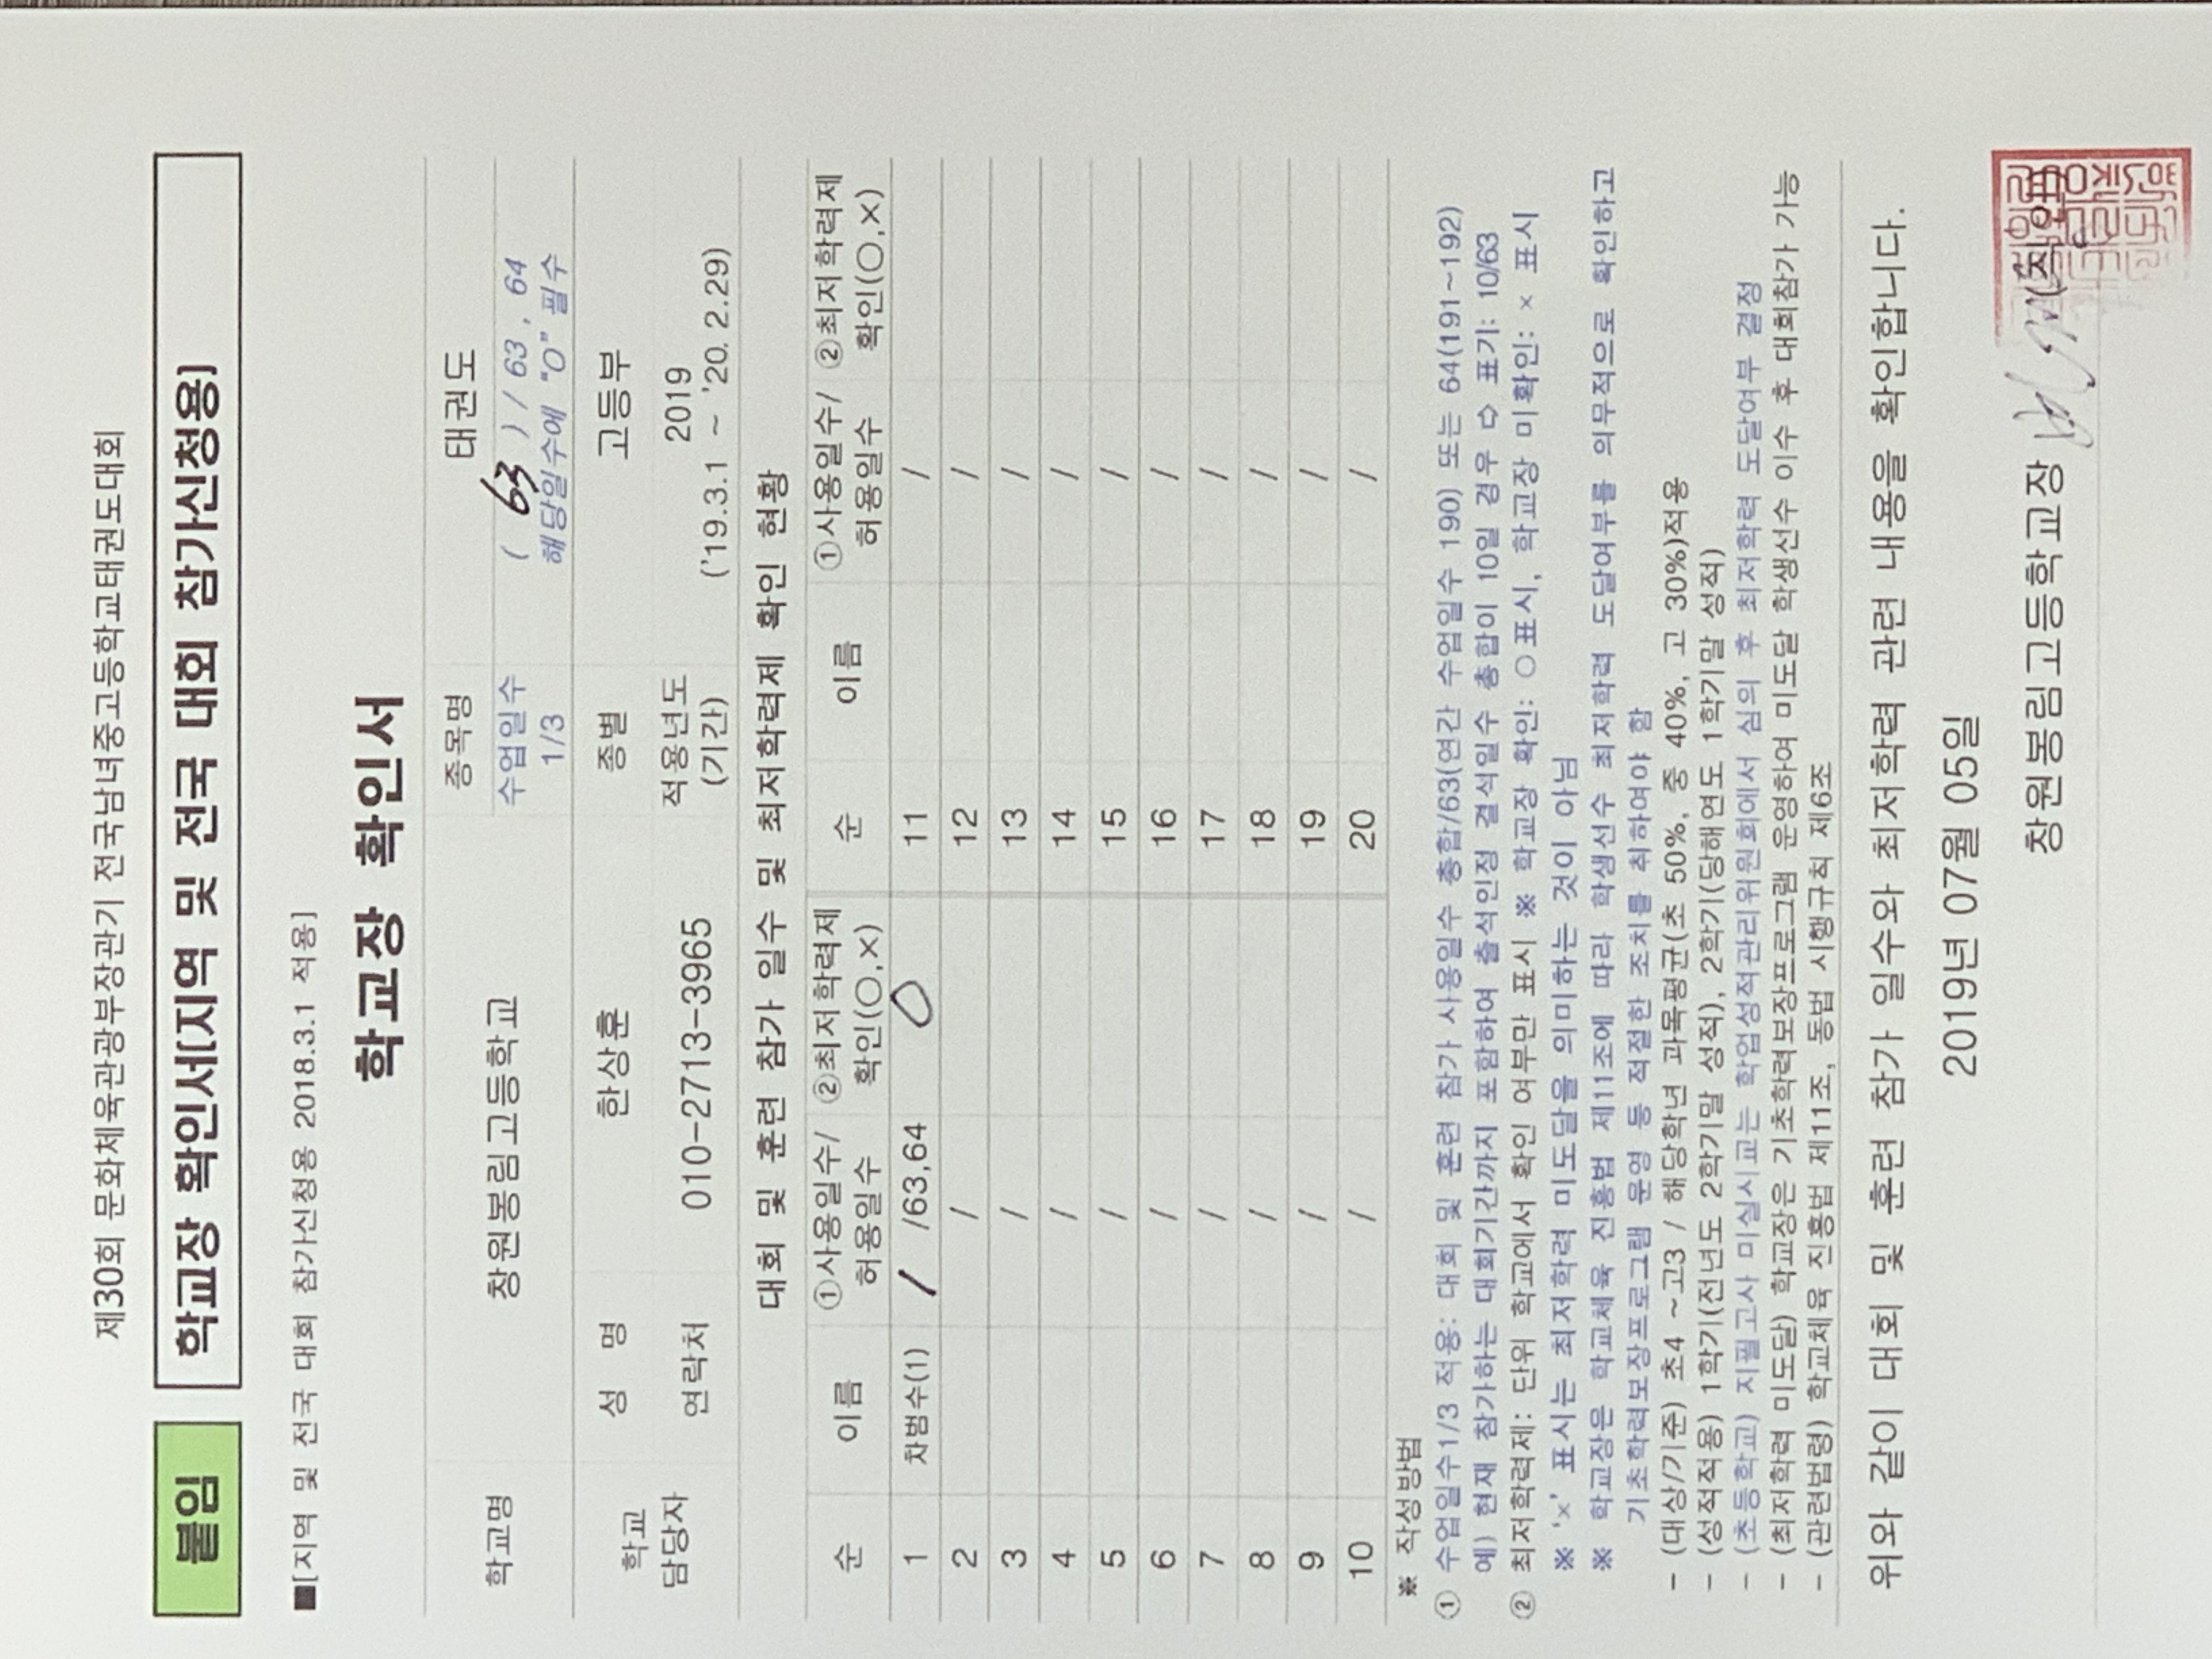 제30회 문화체육관광부장관기 전국남녀중고등학교태권도대회
붙임 학교장 확인서[지역 및 전국 대회 참가신청용]
■[지역 및 전국 대회 참가신청용 2018.3.1 적용]
학교장 확인서
학교명 창원봉림고등학교 종목명 태권도
수업일수 1/3 ( 63 ) / 63 , 64
해당일수에 "O" 필수
학교 담당자 성 명 한상훈 종별 고등부
연락처 010-2713-3965 적용년도 (기간) 2019
('19.3.1 ~ '20. 2.29)
대회 및 훈련 참가 일수 및 최저학력제 확인 현황
순 이름 ①사용일수/ 허용일수 ②최저학력제 확인(○,×) 순 이름 ①사용일수/ 허용일수 ②최저학력제 확인(○,×)
1 차범수(1) / /63,64 O 11 /
2 / 12 /
3 / 13 /
4 / 14 /
5 / 15 /
6 / 16 /
7 / 17 /
8 / 18 /
9 / 19 /
10 / 20 /
※ 작성방법
① 수업일수1/3 적용: 대회 및 훈련 참가 사용일수 총합/63(연간 수업일수 190) 또는 64(191~192)
예) 현재 참가하는 대회기간까지 포함하여 출석인정 결석일수 총합이 10일 경우 ⇨ 표기: 10/63
② 최저학력제: 단위 학교에서 확인 여부만 표시 ※ 학교장 확인: ○표시, 학교장 미확인: × 표시
※ '×' 표시는 최저학력 미도달을 의미하는 것이 아님
※ 학교장은 학교체육 진흥법 제11조에 따라 학생선수 최저학력 도달여부를 의무적으로 확인하고
기초학력보장프로그램 운영 등 적절한 조치를 취하여야 함
- (대상/기준) 초4 ~고3 / 해당학년 과목평균(초 50%, 중 40%, 고 30%)적용
- (성적적용) 1학기(전년도 2학기말 성적), 2학기(당해연도 1학기말 성적)
- (초등학교) 지필고사 미실시교는 학업성적관리위원회에서 심의 후 최저학력 도달여부 결정
- (최저학력 미도달) 학교장은 기초학력보장프로그램 운영하여 미도달 학생선수 이수 후 대회참가 가능
- (관련법령) 학교체육 진흥법 제11조, 동법 시행규칙 제6조
위와 같이 대회 및 훈련 참가 일수와 최저학력 관련 내용을 확인합니다.
2019년 07월 05일
창원봉림고등학교장 (직인)